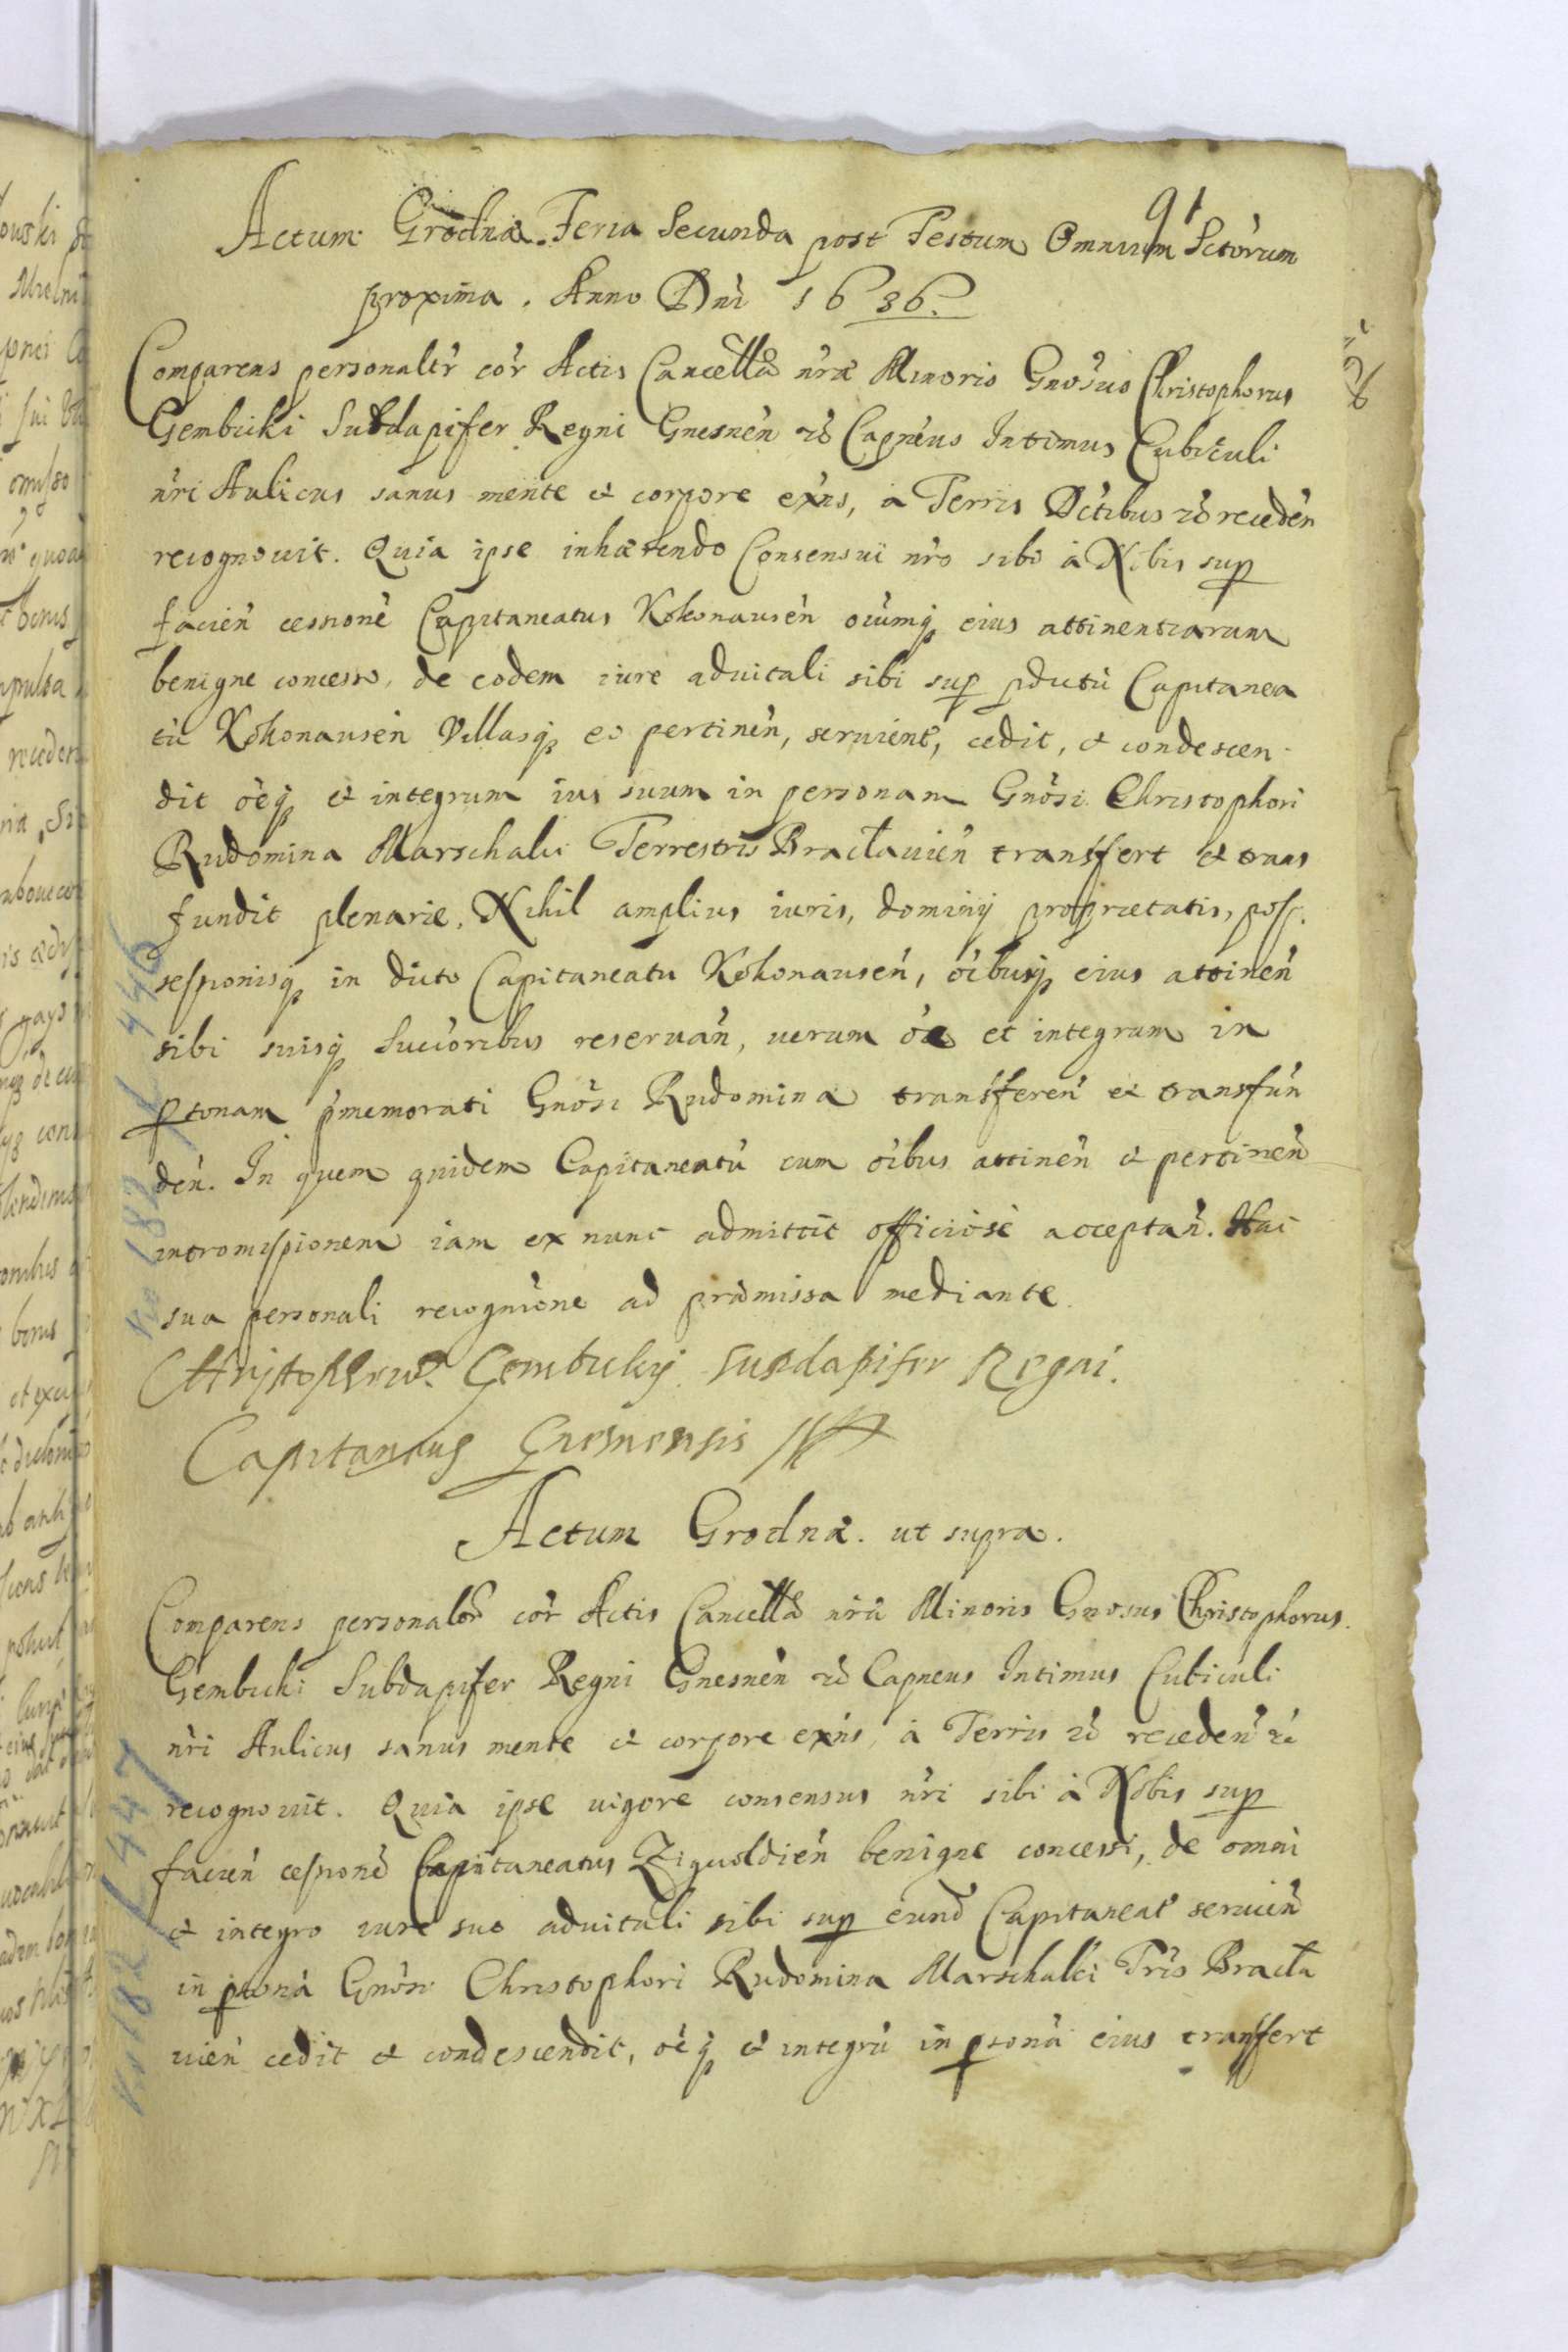 91
Actum Grodnæ. Feria Secunda post Festum Omnium Sctorum
proxima. Anno Dni 1636.
Comparens personaltr cor Actis Cancellæ nræ Minoris Gnosus Christophorus
Gembicki Subdapifer Regni Gnesnen &c Capneus Intimus Cubiculi
nri Aulicus sanus mente et corpore exns, a Terris Dctibus &c receden
recognovit. Quia ipse inhærendo Consensui nro sibi à Nobis sup
facien cessione Capitaneatus Kokonausen oiumq eius attinentiarum
benigne concesso, de eodem iure advitali sibi sup pdictu Capitanea
tu Kokonausen Villasq eo pertinen, servient, cedit, et condescen
dit oeq et integrum ius suum in personam Gnosi Christophori
Rudomina Marschalci Terrestris Bractavien transfert et trans
fundit plenarie. Nihil amplius iuris, dominij proprietatis, pos
sessionisq in dicto Capitaneatu Kokonausen, oibusq eius attinen
sibi suisq Succoribus reservan, verum oe et integrum in
psonam pmemorati Gnosi Rudomina transferen et transfun
den. In quem quidem Capitaneatu cum oibus attinen et pertinen
intromissionem iam ex nunc admittit officiose acceptan. Hac
sua personali recognione ad præmissa mediante.
Christophorus Gembickij Subdapifer Regni.
Capitaneus Gnesnensis
Actum Grodnæ. ut supra.
Comparens personalr cor Actis Cancellæ nræ Minoris Gnosus Christophorus
Gembicki Subdapifer Regni Gnesnen &c Capneus Intimus Cubiculi
nri Aulicus sanus mente et corpore exns, a Terris &c receden &c
recognovit. Quia ipse vigore consensus nri sibi à Nobis sup
facien cessione Capitaneatus Ziguoldien benigne concessi, de omni
et integro iure suo advitali sibi sup eund Capitaneat servien
in psona Gnosi Christophori Rudomina Marschalci Tris Bracta
vien cedit et condescendit, oeq et integru in psona eius transfert
No 182 / 446
No 182 / 447